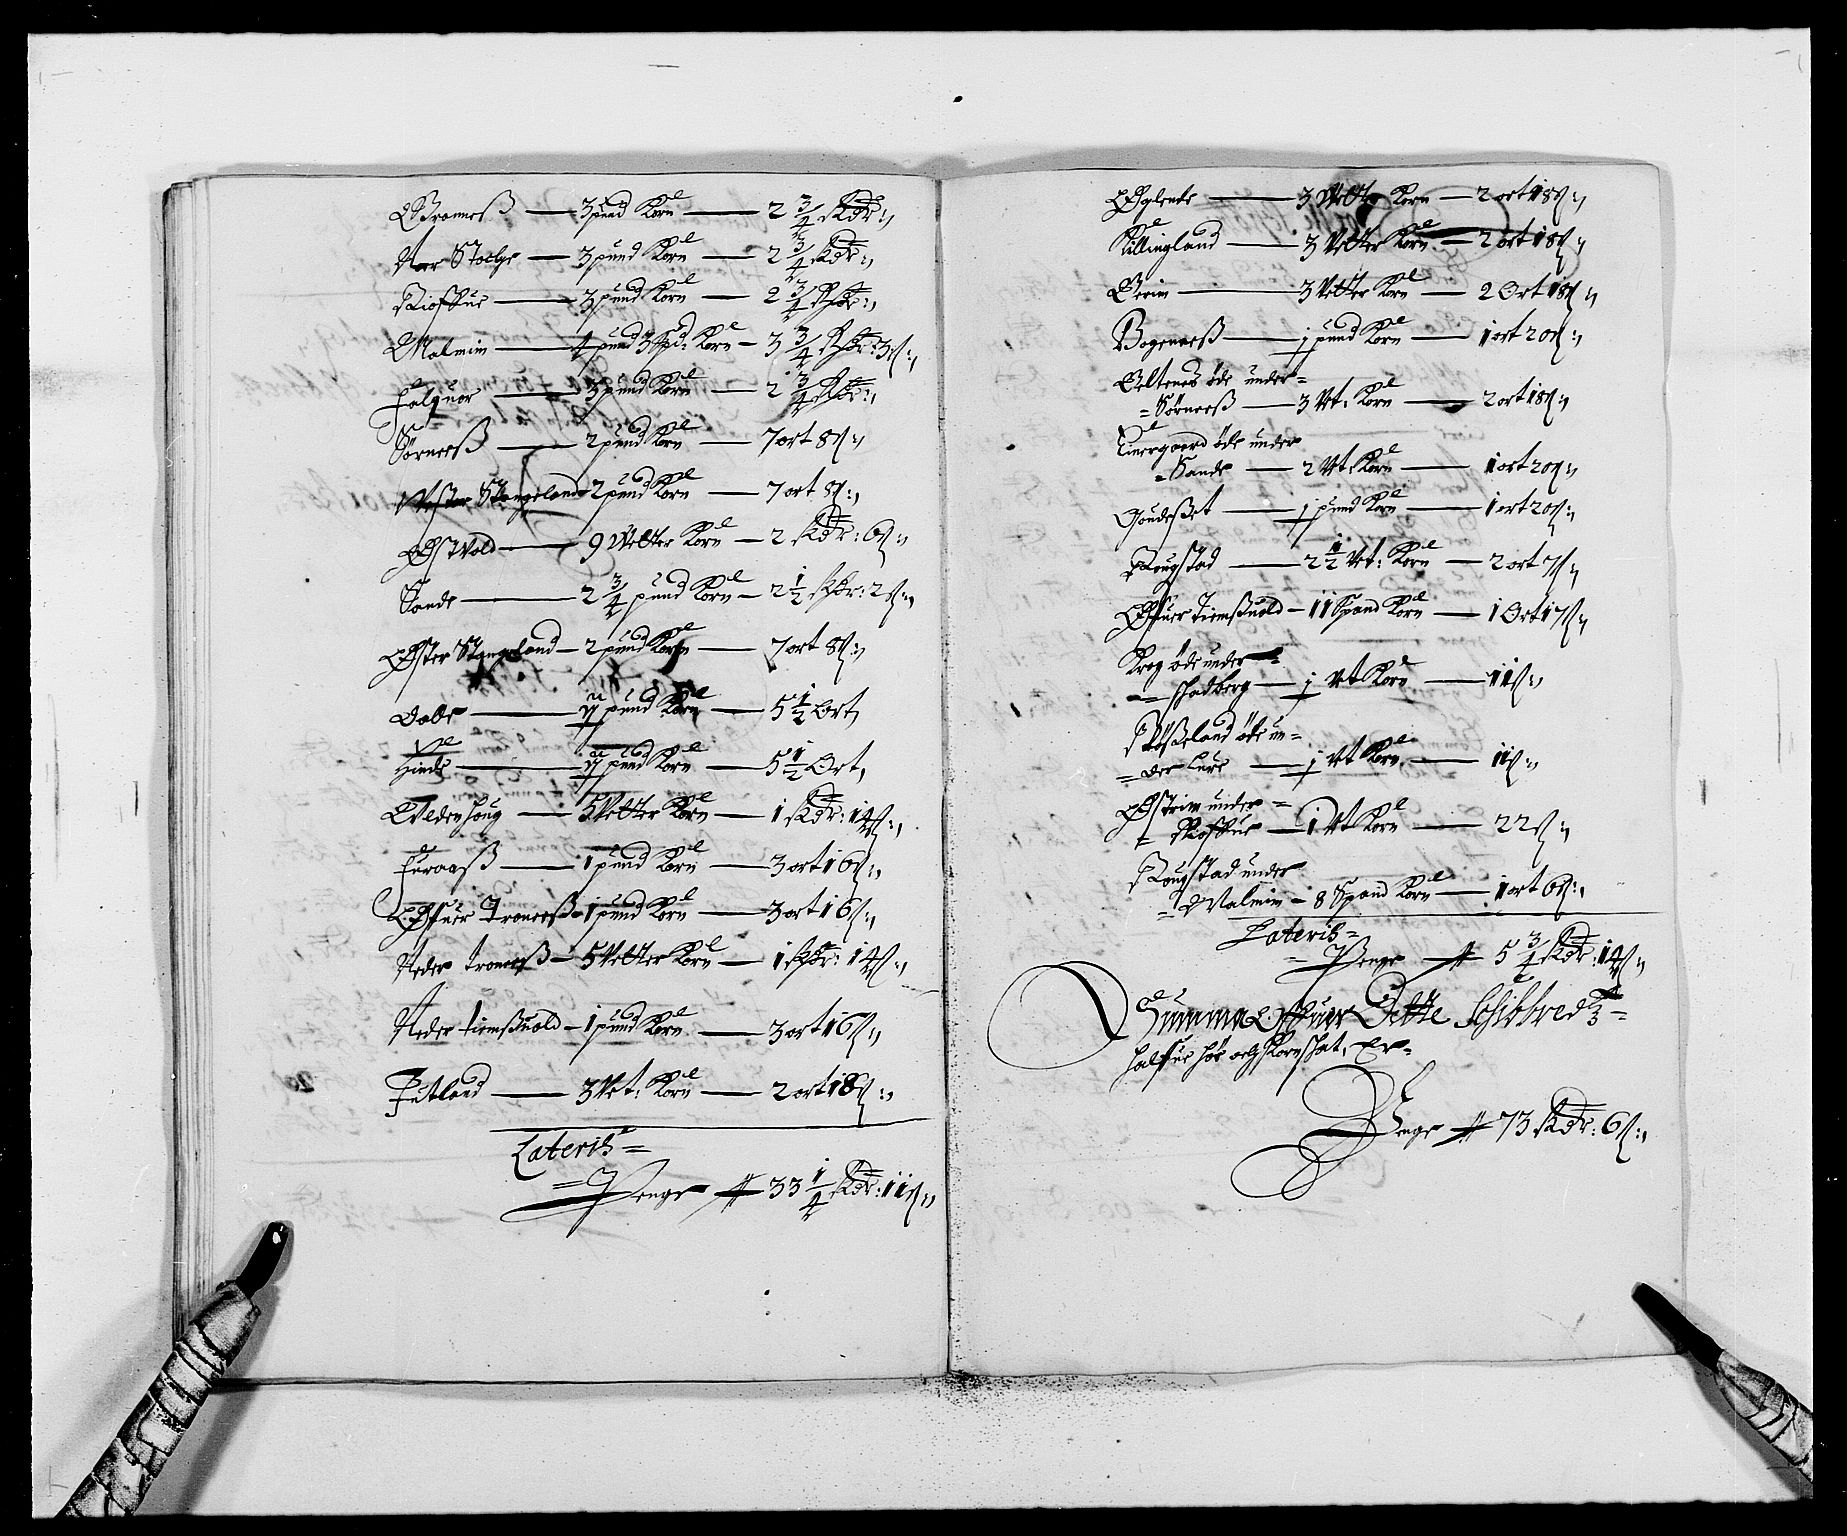 Bromeß — 3 pund Korn — 2 3/4 Rdr:
Aar Stoelse — 3 pund Korn — 2 3/4 Rdr:
Riosfue — 3 pund Korn — 2 3/4 Rdr:
Malmim — 4 pund 3 Spd: Korn — 3 3/4 Rdr: 3 ß:
Falquor — 3 pund Korn — 2 3/4 Rdr:
Sørneeß — 2 pund Korn — 7 ort 8 ß:
Wester Stangeland 2 pund Korn — 7 ort 8 ß:
Østvold — 9 Vetter Korn — 2 Rdr: 6 ß:
Sande — 2 3/4 pund Korn — 2 1/2 Rdr: 2 ß:
Øster Stangeland — 2 pund Korn — 7 ort 8 ß:
Dalle — pund Korn — 5 1/2 Ort
Hinde — pund Korn — 5 1/2 Ort
Eldenhoug — 5 Vetter Korn — 1 Rdr: 14 ß:
Furaaß — 1 pund Korn — 3 ort 16 ß:
Øfuer Troneeß — 1 pund Korn — 3 ort 16 ß:
Neder troneeß — 5 Vetter Korn — 1 Rdr: 14 ß:
Neder tiemßuold — 1 pund Korn — 3 ort 16 ß:
Fitland — 3 Vet: Korn — 2 ort 18 ß:
Lateris =
= Penge 33 1/4 Rdr: 11 ß:
Øglende — 3 Vetter Korn — 2 ort 18 ß:
Killingland — 3 Vetter Korn — 2 ort 18 ß:
Berim — 3 Vetter Korn — 2 Ort 18 ß:
Bogeneeß — j pund Korn — 1 ort 20 ß:
Beltenes øde under =
= Sørneeß — 3 Vt: Korn — 2 ort 18 ß:
Tiergaard øde under
= Sande — 2 Vt: Korn — 1 ort 20 ß:
Goudeßet — j pund Korn — 1 ort 20 ß:
Rougstad — 2 1/2 Vt: Korn — 2 ort 7 ß:
Øfuer tiemßuold — 11 Spand Korn — 1 Ort 17 ß:
Krog øde under =
= Skadberg — j Vt Korn — 11 ß:
Røßeland øde un =
= der Lure — j Vt Korn — 11 ß:
Østrim under =
= Riosfue — 1 Vt Korn — 22 ß:
Rougstad under
= Malmin — 8 Spand Korn — 1 ort 6 ß:
Lateris =
= Penge 5 3/4 Rdr: 14 ß:
Summa Offuer Dette Schibbredz =
halfue høe och Kornskat, Er =
Penge 73 Rdr: 6 ß: